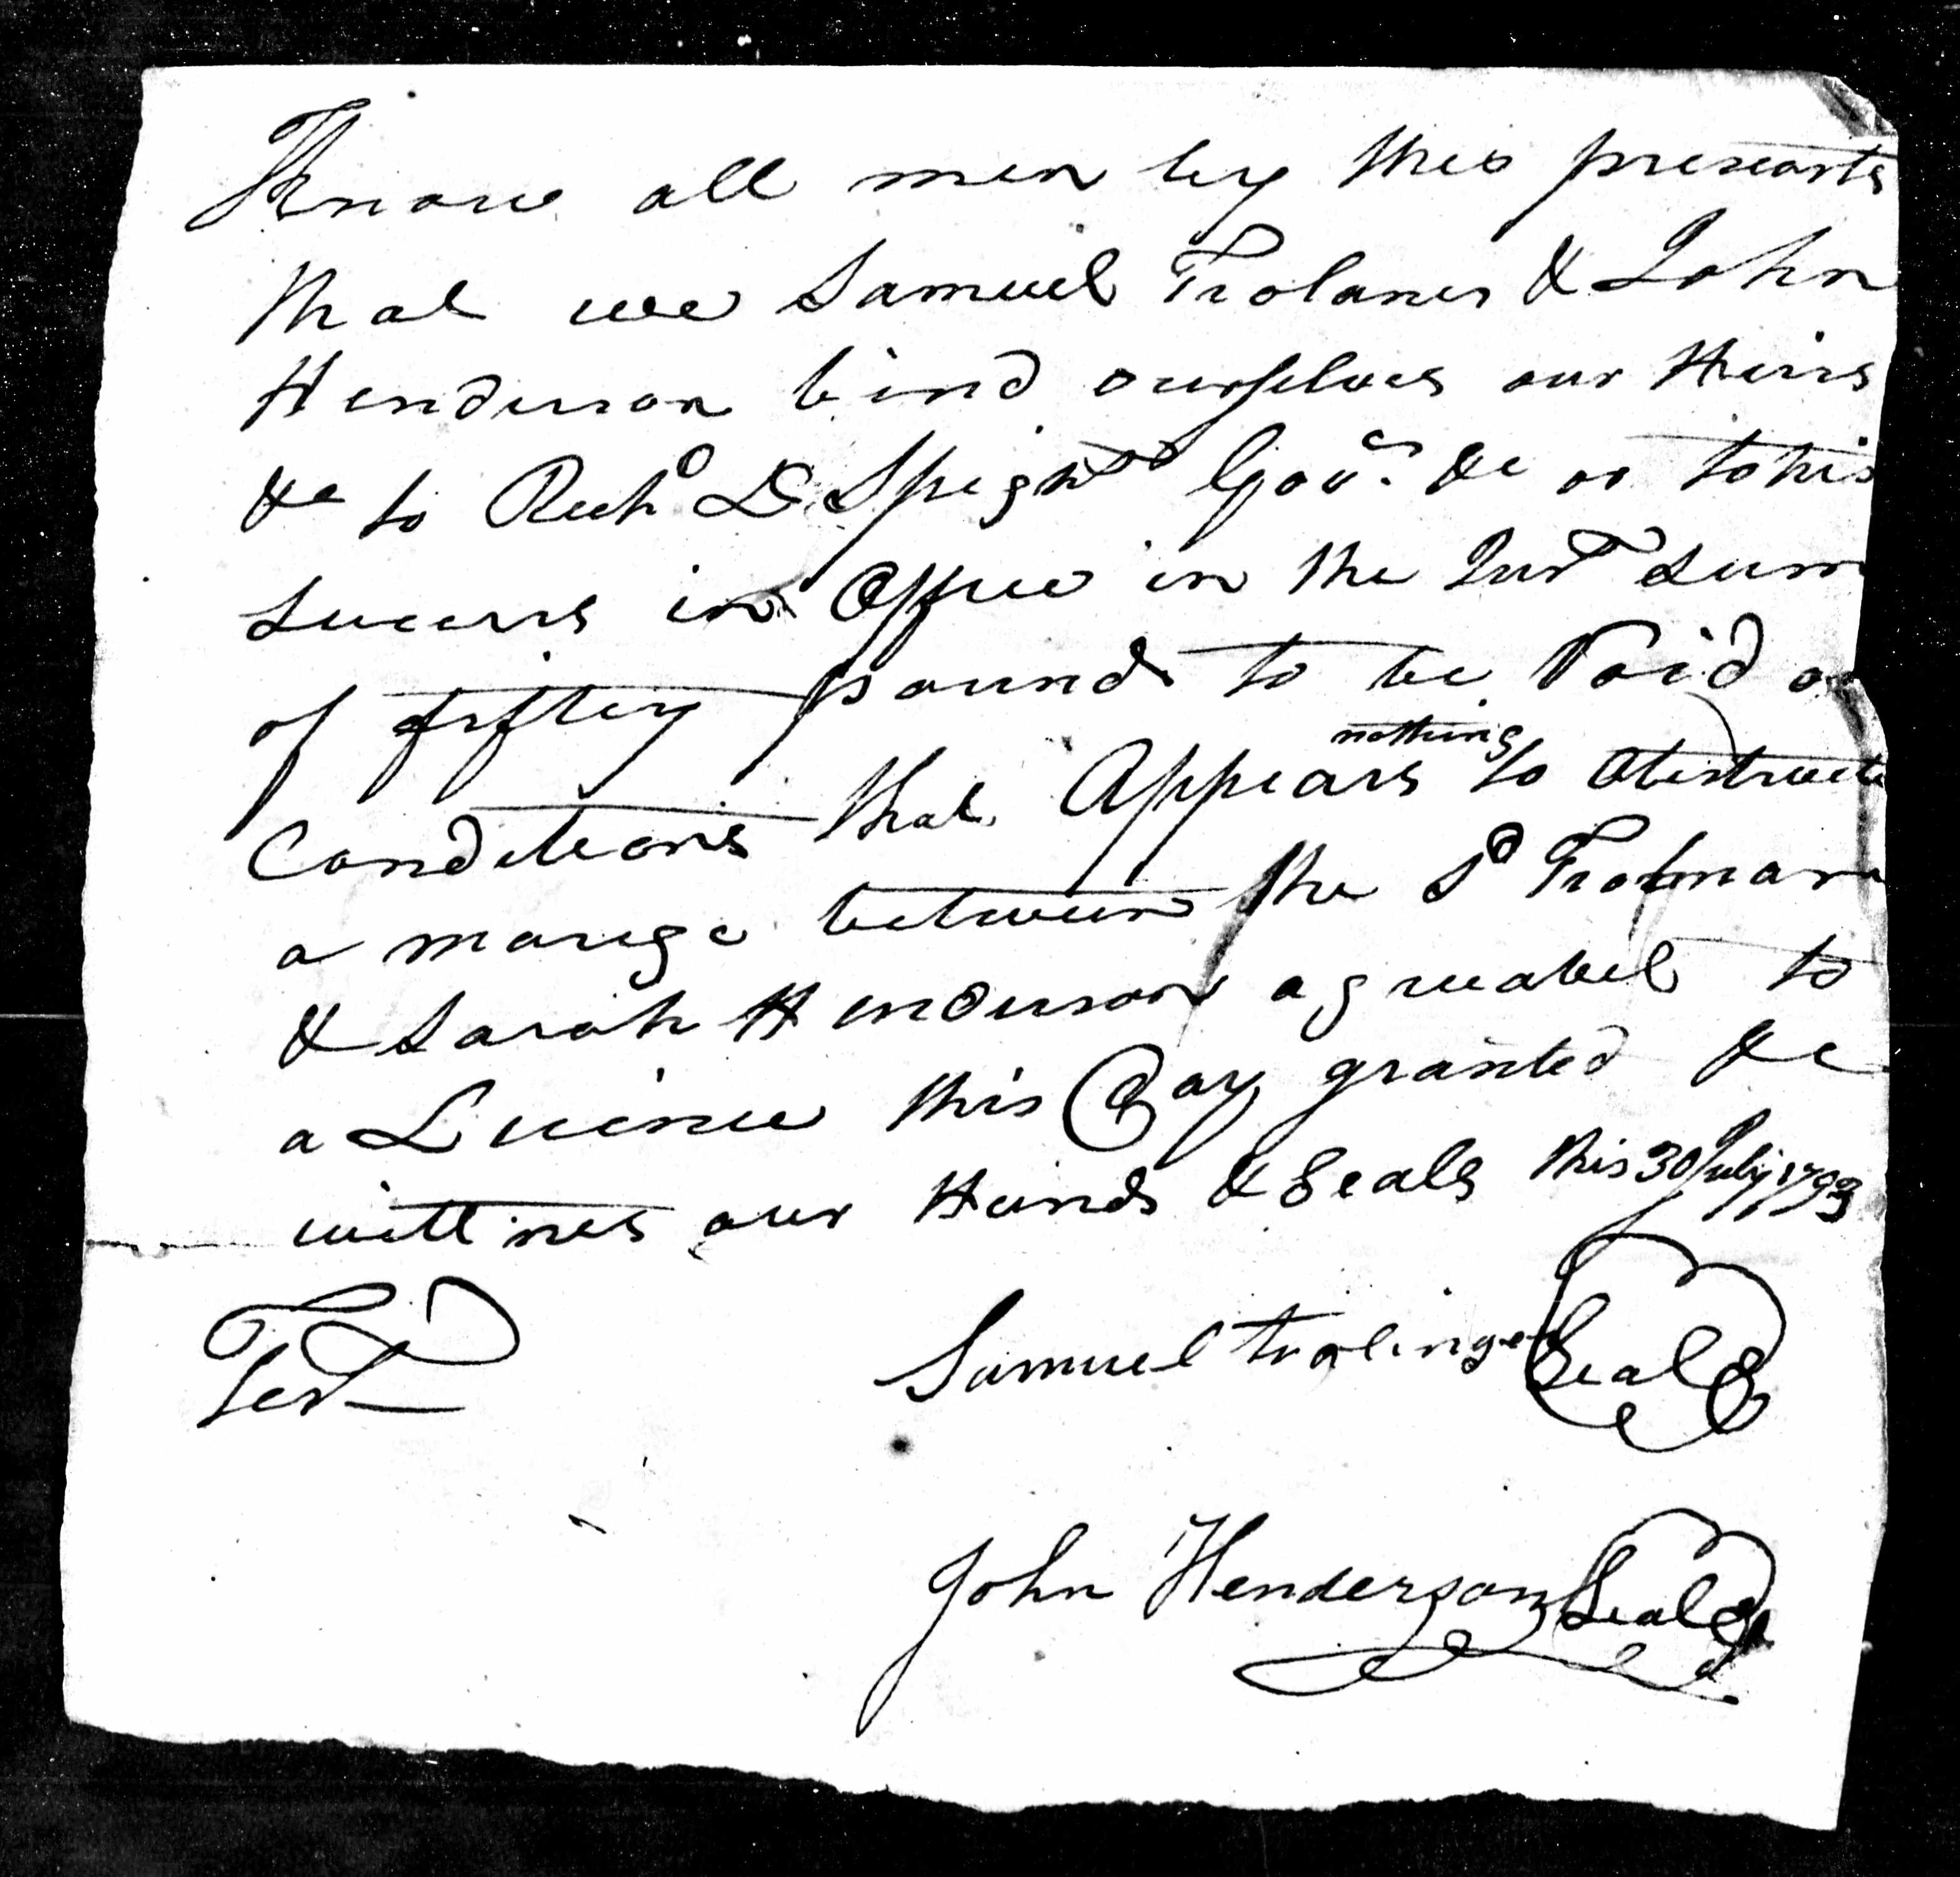 Know all men by thes presents
that we Samuel Trolaner & John
Henderson bind ourselves our Heirs
&c to Richd D. Spight Govr. &c or to his
Sucucrs in Office in the Just Sum
of fiftey pounds to be Paid on
Conditions that Appears nothing to Abstruct
a marige between the Sd Trolman
& Sarah Henderson agreabel to
a Licince this Day granted &c
wittnes our Hands & Seals this 30 July 1793
Test
Samuel trolinger Seal
John Henderson Seal